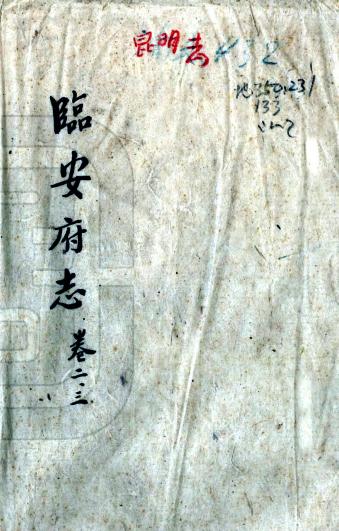 昆明 432
地350.231
133
臨安府志 卷二.三